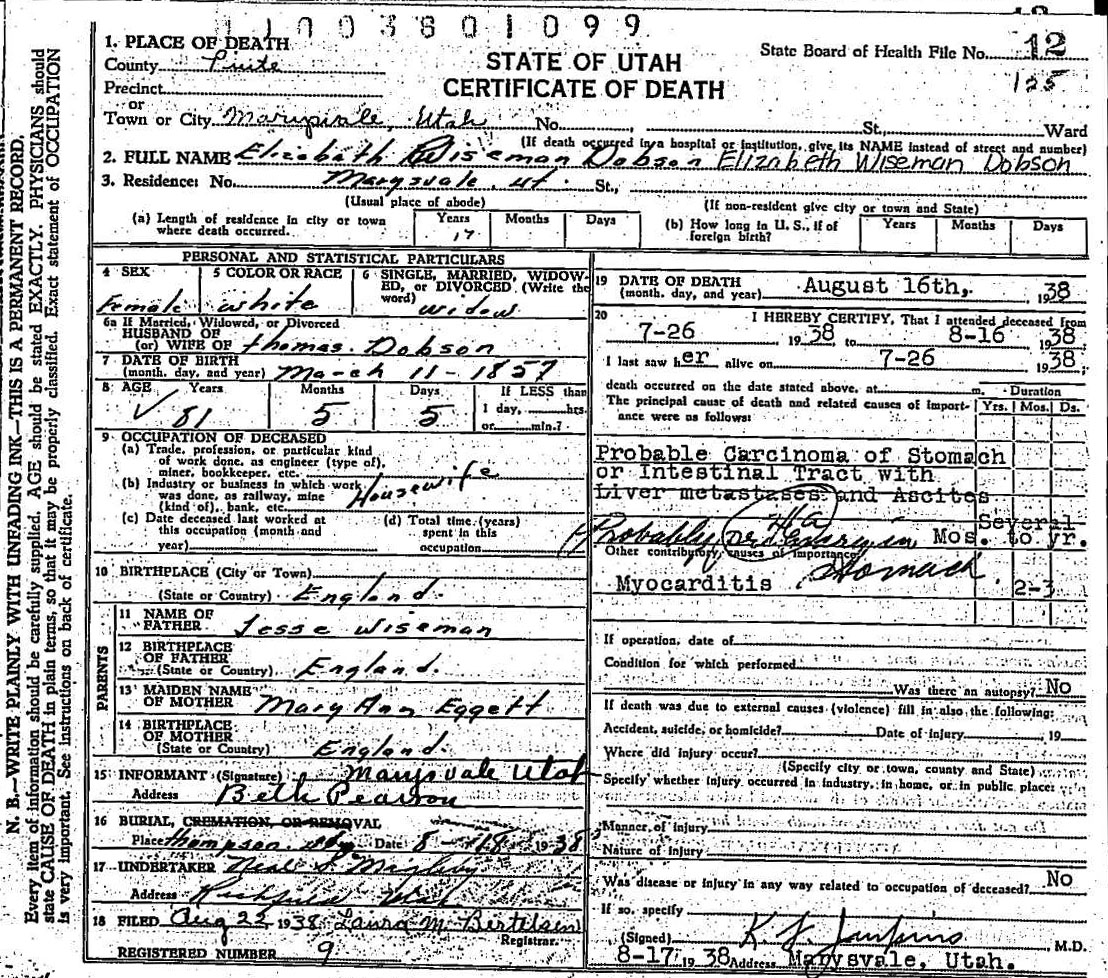 11003801099
12
1. PLACE OF DEATH
County Piute
Precinct
or
Town or City Marysvale, Utah No. St., Ward
STATE OF UTAH
CERTIFICATE OF DEATH
State Board of Health File No. 12
125
(If death occurred in a hospital or institution, give its NAME instead of street and number)
2. FULL NAME Elizabeth Wiseman Dobson Elizabeth Wiseman Dobson
3. Residence: No. Marysvale, Ut. St.,
(Usual place of abode) (If non-resident give city or town and State)
(a) Length of residence in city or town where death occurred. Years 17 Months Days
(b) How long in U. S., if of foreign birth? Years Months Days
PERSONAL AND STATISTICAL PARTICULARS
4 SEX Female
5 COLOR OR RACE white
6 SINGLE, MARRIED, WIDOWED, or DIVORCED (Write the word) widow
6a If Married, Widowed, or Divorced
HUSBAND OF
(or) WIFE OF Thomas Dobson
7 DATE OF BIRTH
(month, day, and year) March 11-1857
8 AGE Years Months Days If LESS than
✓ 81 5 5 1 day, hrs.
or min.?
9 OCCUPATION OF DECEASED
(a) Trade, profession, or particular kind
of work done, as engineer (type of),
miner, bookkeeper, etc.
Housewife
(b) Industry or business in which work
was done, as railway, mine
(kind of), bank, etc.
(c) Date deceased last worked at
this occupation (month and
year)
(d) Total time (years)
spent in this
occupation
10 BIRTHPLACE (City or Town)
(State or Country) England.
PARENTS
11 NAME OF
FATHER Jesse Wiseman
12 BIRTHPLACE
OF FATHER
(State or Country) England.
13 MAIDEN NAME
OF MOTHER Mary Ann Eggett
14 BIRTHPLACE
OF MOTHER
(State or Country) England.
15 INFORMANT (Signature) Marysvale Utah
Address Beth Pearson
16 BURIAL, CREMATION, OR REMOVAL
Place Thompson Date 8-18 1938
17 UNDERTAKER Neal S Magleby
Address Richfield Utah
18 FILED Aug 22 1938 Laura M. Bertelsen
Registrar.
REGISTERED NUMBER 9
19 DATE OF DEATH
(month, day, and year) August 16th, 1938
20 I HEREBY CERTIFY, That I attended deceased from
7-26 1938 to 8-16 1938
I last saw her alive on 7-26 1938;
death occurred on the date stated above, at m. Duration
The principal cause of death and related causes of importance were as follows: Yrs. Mos. Ds.
Probable Carcinoma of Stomach
or Intestinal Tract with
Liver metastases and Ascites
Several
Probably primary in Mos. to yr.
Other contributory causes of importance:
stomach
Myocarditis 2-3
If operation, date of
Condition for which performed
Was there an autopsy? No
If death was due to external causes (violence) fill in also the following:
Accident, suicide, or homicide? Date of injury 19
Where did injury occur?
(Specify city or town, county and State)
Specify whether injury occurred in industry, in home, or in public place:
Manner of injury
Nature of injury
Was disease or injury in any way related to occupation of deceased? No
If so, specify
(Signed) M.D.
8-17 1938 Address Marysvale, Utah.
N. B.—WRITE PLAINLY WITH UNFADING INK—THIS IS A PERMANENT RECORD.
Every item of information should be carefully supplied. AGE should be stated EXACTLY. PHYSICIANS should
state CAUSE OF DEATH in plain terms, so that it may be properly classified. Exact statement of OCCUPATION
is very important. See instructions on back of certificate.